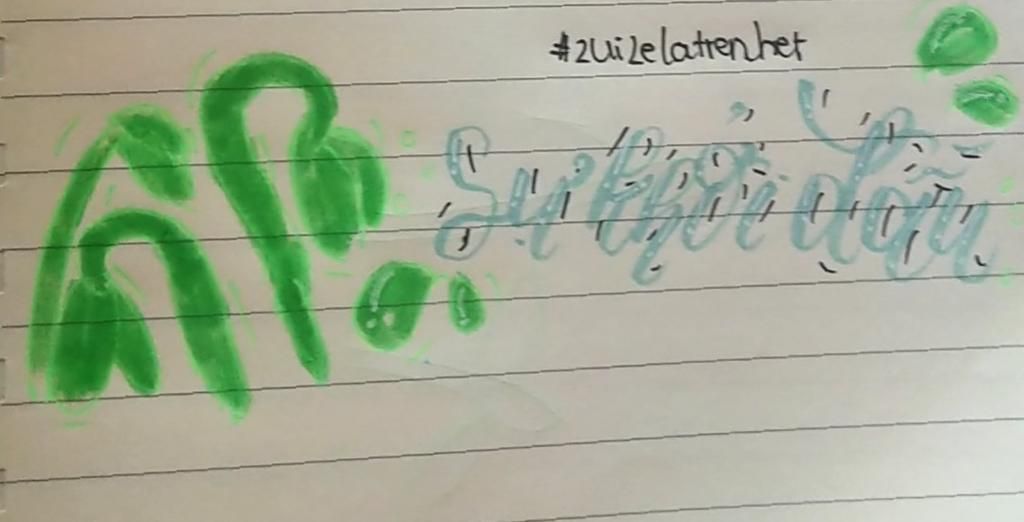 #zuizelatrenhet
Sự khởi đầu